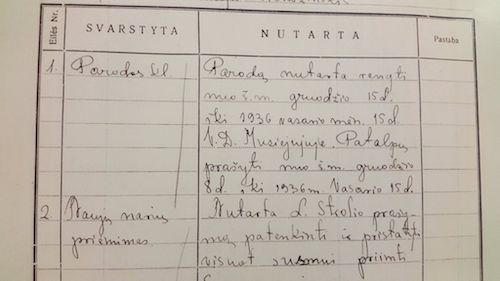 Eilės Nr.
SVARSTYTA
NUTARTA
Pastaba
1.
Parodos kl.
Parodą nutarta rengti
nuo š.m. gruodžio 15 d.
iki 1936 vasario mėn. 15 d.
V. D. Muziejujuje. Patalpų
prašyti nuo š.m. gruodžio
8 d. iki 1936 m. Vasario 15 d.
2.
Naujų narių
priėmimas.
Nutarta L. Strolio prašy-
mą patenkinti ir pristatyti
visuot. priimti